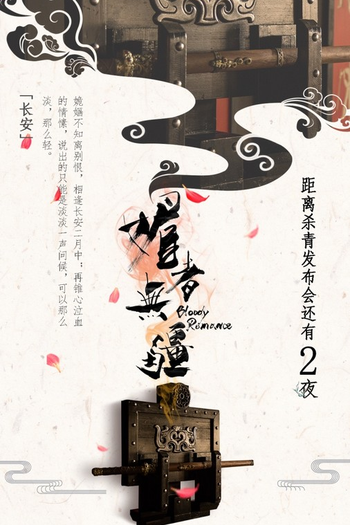 「长安」
嫦娥不知离别恨，相逢长安二月中；再锥心泣血
的情愫，说出的只能是淡淡一声问候，可以那么
淡，那么轻。
媚者無疆
Bloody
Romance
距离杀青发布会还有2夜